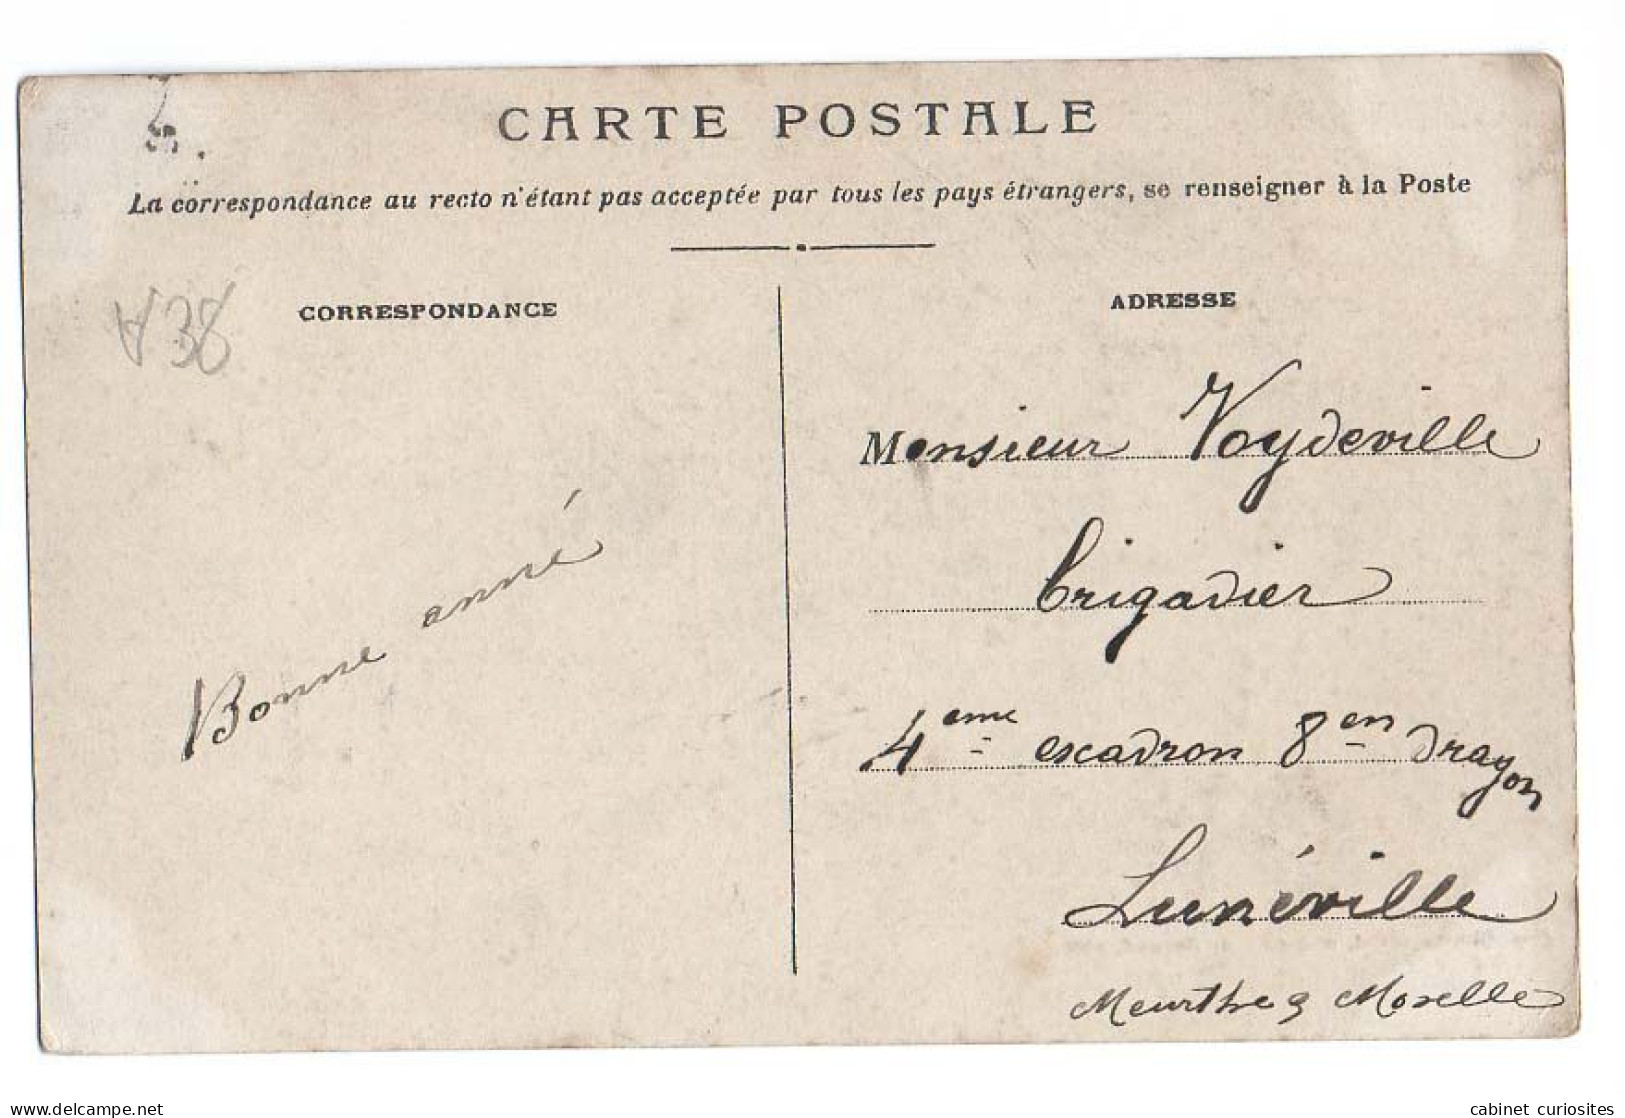 CARTE POSTALE
La correspondance au recto n'étant pas acceptée par tous les pays étrangers, se renseigner à la Poste
A38
CORRESPONDANCE
Bonne anné
ADRESSE
Monsieur Voydeville
brigadier
4eme escadron 8en dragon
Lunéville
Meurthe & Moselle
www.delcampe.net
cabinet_curiosites